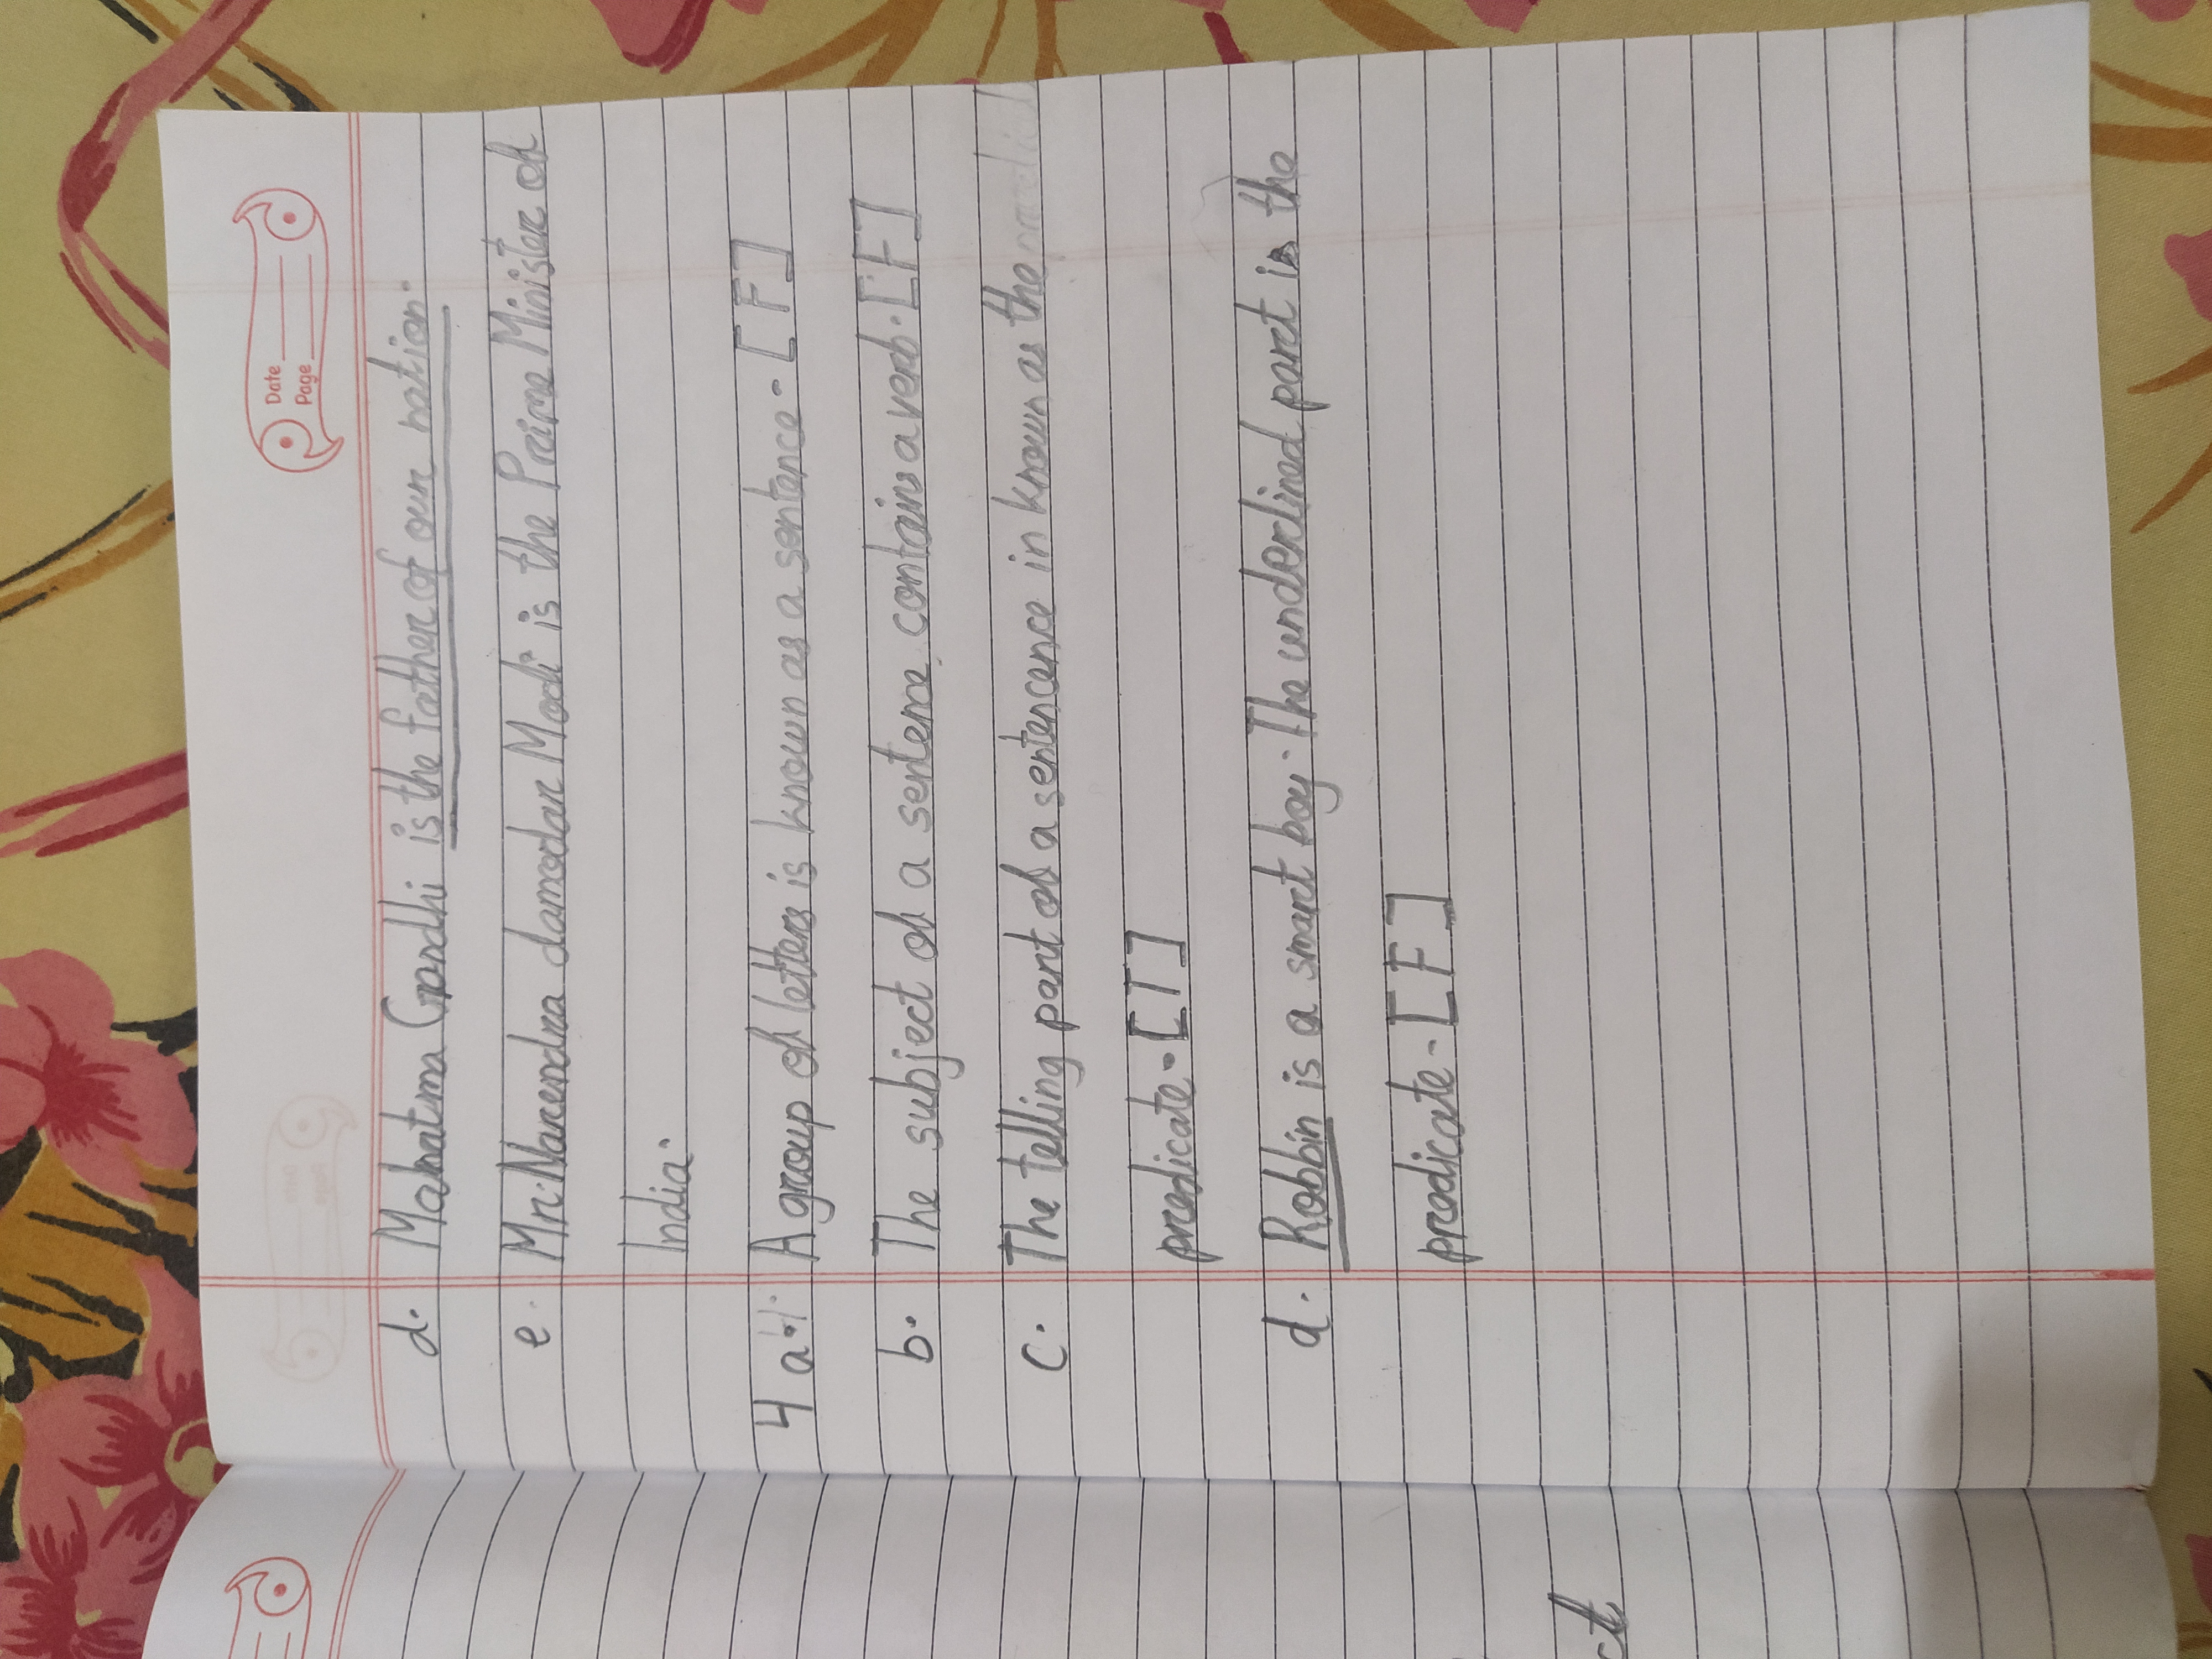 Date
Page
d. Mahatma Gandhi is the father of our nation.
e. Mr. Narendra damodar Modi is the Prime Minister of
India.
4 a. A group of letters is known as a sentence - [F]
b. The subject of a sentence contains a verb. [F]
c. The telling part of a sentencence in known as the
predicate - [T]
d. Robbin is a smart boy. The underlined part is the
predicate - [F]
ct